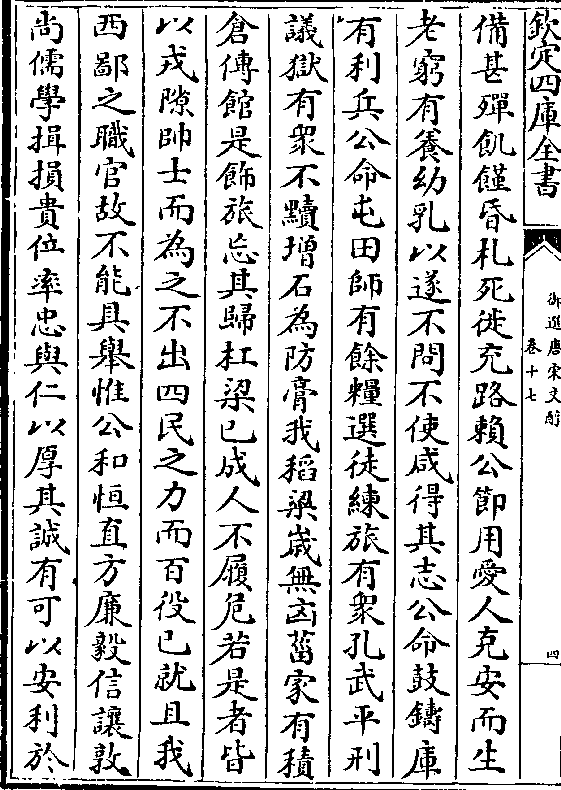 欽定四庫全書
御選唐宋文醇
卷十七
四
備甚殫飢饉昏札死徙充路賴公節用愛人克安而生
老窮有養幼乳以遂不問不使咸得其志公命鼓鑄庫
有利兵公命屯田師有餘糧選徒練旅有衆孔武平刑
議獄有衆不黷增石為防膏我稻粱嵗無凶菑家有積
倉傳館是飾旅忘其歸杠梁已成人不履危若是者皆
以戎隙帥士而為之不出四民之力而百役已就且我
西鄙之職官故不能具舉惟公和恒直方廉毅信讓敦
尚儒學揖損貴位率忠與仁以厚其誠有可以安利於